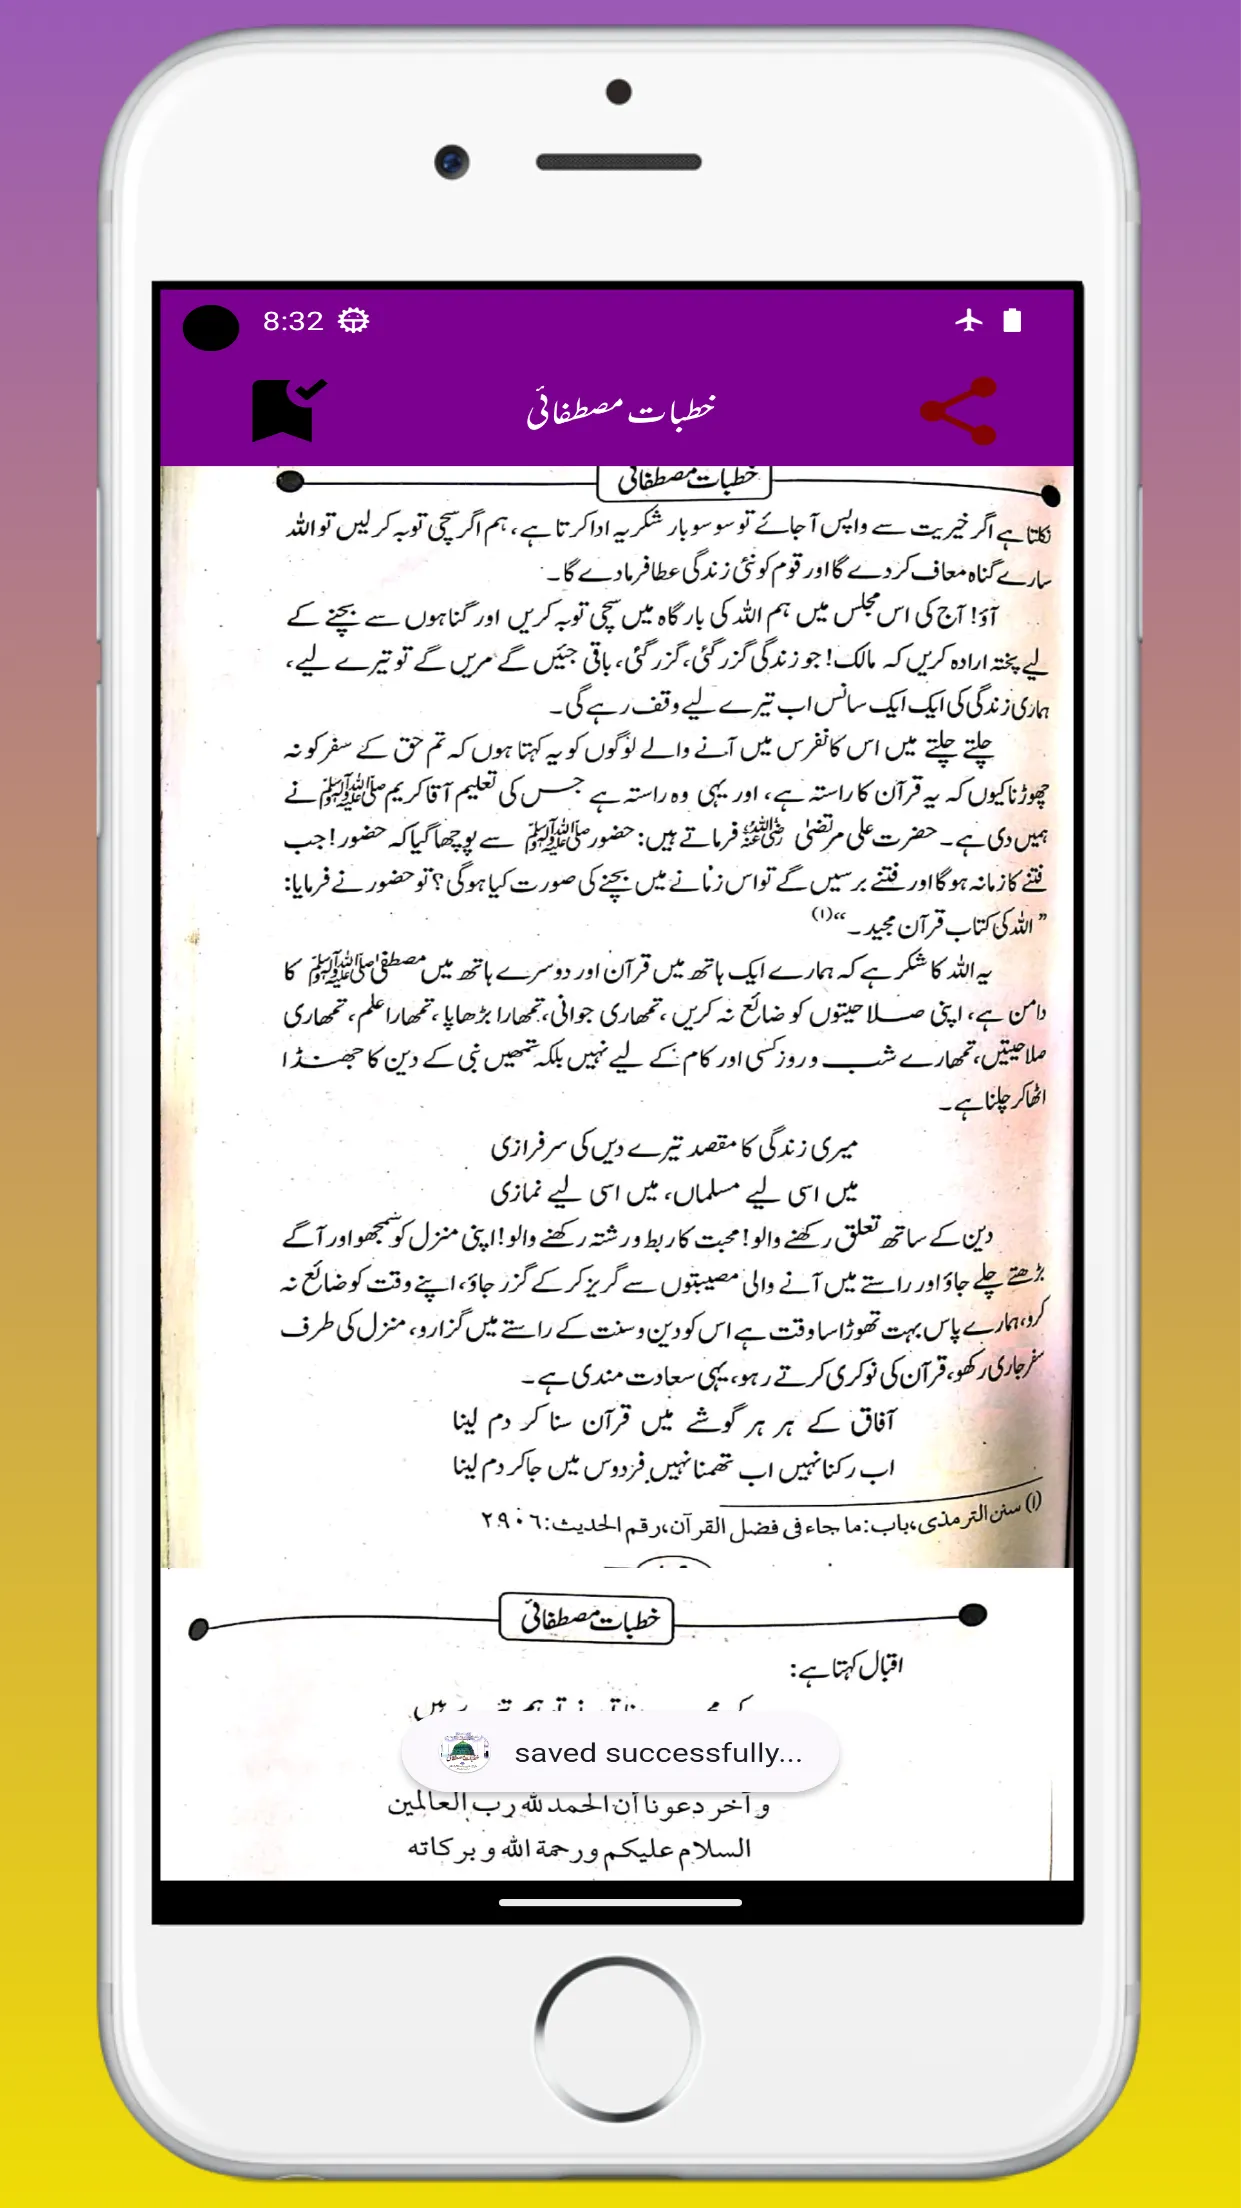 8:32
خطبات مصطفائی
خطبات مصطفائی
نکلتا ہے اگر خیریت سے واپس آجائے تو سو سو بار شکریہ ادا کرتا ہے، ہم اگر سچی توبہ کر لیں تو اللہ
سارے گناہ معاف کر دے گا اور قوم کو نئی زندگی عطا فرما دے گا۔
آؤ! آج کی اس مجلس میں ہم اللہ کی بارگاہ میں سچی توبہ کریں اور گناہوں سے بچنے کے
لیے پختہ ارادہ کریں کہ مالک! جو زندگی گزر گئی، گزر گئی، باقی جئیں گے مریں گے تو تیرے لیے،
ہماری زندگی کی ایک ایک سانس اب تیرے لیے وقف رہے گی۔
چلتے چلتے میں اس کانفرس میں آنے والے لوگوں کو یہ کہتا ہوں کہ تم حق کے سفر کو نہ
چھوڑنا کیوں کہ یہ قرآن کا راستہ ہے، اور یہی وہ راستہ ہے جس کی تعلیم آقا کریم ﷺ نے
ہمیں دی ہے۔ حضرت علی مرتضیٰ رضی اللہ عنہ فرماتے ہیں: حضور ﷺ سے پوچھا گیا کہ حضور! جب
فتنے کا زمانہ ہوگا اور فتنے برسیں گے تو اس زمانے میں بچنے کی صورت کیا ہوگی؟ تو حضور نے فرمایا:
”اللہ کی کتاب قرآن مجید۔“(۱)
یہ اللہ کا شکر ہے کہ ہمارے ایک ہاتھ میں قرآن اور دوسرے ہاتھ میں مصطفیٰ ﷺ کا
دامن ہے، اپنی صلاحیتوں کو ضائع نہ کریں، تمھاری جوانی، تمھارا بڑھاپا، تمھارا علم، تمھاری
صلاحیتیں، تمھارے شب و روز کسی اور کام کے لیے نہیں بلکہ تمھیں نبی کے دین کا جھنڈا
اٹھا کر چلنا ہے۔
میری زندگی کا مقصد تیرے دیں کی سرفرازی
میں اسی لیے مسلماں، میں اسی لیے نمازی
دین کے ساتھ تعلق رکھنے والو! محبت کا ربط و رشتہ رکھنے والو! اپنی منزل کو سمجھو اور آگے
بڑھتے چلے جاؤ اور راستے میں آنے والی مصیبتوں سے گریز کر کے گزر جاؤ، اپنے وقت کو ضائع نہ
کرو، ہمارے پاس بہت تھوڑا سا وقت ہے اس کو دین و سنت کے راستے میں گزارو، منزل کی طرف
سفر جاری رکھو، قرآن کی نوکری کرتے رہو، یہی سعادت مندی ہے۔
آفاق کے ہر ہر گوشے میں قرآن سنا کر دم لینا
اب رکنا نہیں اب تھمنا نہیں فردوس میں جا کر دم لینا
(۱) سنن الترمذی، باب: ما جاء فی فضل القرآن، رقم الحدیث: ۲۹۰۶
خطبات مصطفائی
اقبال کہتا ہے:
saved successfully...
و آخر دعونا أن الحمد لله رب العالمين
السلام علیکم ورحمة الله و برکاته